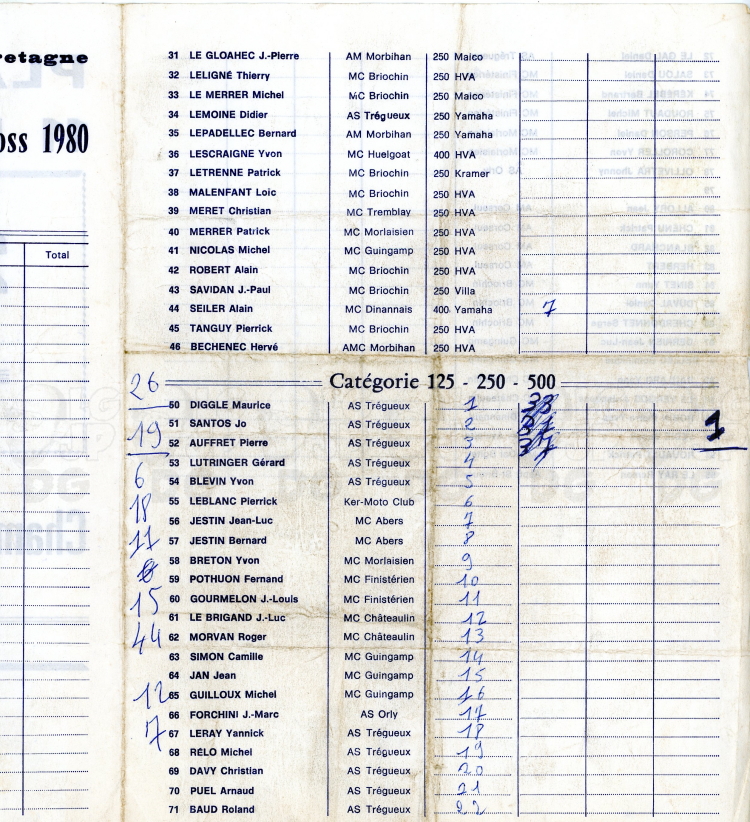 retagne
oss 1980
Total
31 LE GLOAHEC J.-Pierre AM Morbihan 250 Maico
32 LELIGNÉ Thierry MC Briochin 250 HVA
33 LE MERRER Michel MC Briochin 250 Maico
34 LEMOINE Didier AS Trégueux 250 Yamaha
35 LEPADELLEC Bernard AM Morbihan 250 Yamaha
36 LESCRAIGNE Yvon MC Huelgoat 400 HVA
37 LETRENNE Patrick MC Briochin 250 Kramer
38 MALENFANT Loïc MC Briochin 250 HVA
39 MERET Christian MC Tremblay 250 HVA
40 MERRER Patrick MC Morlaisien 250 HVA
41 NICOLAS Michel MC Guingamp 250 HVA
42 ROBERT Alain MC Briochin 250 HVA
43 SAVIDAN J.-Paul MC Briochin 250 Villa
44 SEILER Alain MC Dinannais 400 Yamaha 7
45 TANGUY Pierrick MC Briochin 250 HVA
46 BECHENEC Hervé AMC Morbihan 250 HVA
26 Catégorie 125 - 250 - 500
50 DIGGLE Maurice AS Trégueux 1
51 SANTOS Jo AS Trégueux 2 1
19 52 AUFFRET Pierre AS Trégueux 3
53 LUTRINGER Gérard AS Trégueux 4
6 54 BLEVIN Yvon AS Trégueux 5
18 55 LEBLANC Pierrick Ker-Moto Club 6
56 JESTIN Jean-Luc MC Abers 7
11 57 JESTIN Bernard MC Abers 8
58 BRETON Yvon MC Morlaisien 9
59 POTHUON Fernand MC Finistérien 10
15 60 GOURMELON J.-Louis MC Finistérien 11
61 LE BRIGAND J.-Luc MC Châteaulin 12
44 62 MORVAN Roger MC Châteaulin 13
63 SIMON Camille MC Guingamp 14
64 JAN Jean MC Guingamp 15
12 65 GUILLOUX Michel MC Guingamp 16
66 FORCHINI J.-Marc AS Orly 17
7 67 LERAY Yannick AS Trégueux 18
68 RÉLO Michel AS Trégueux 19
69 DAVY Christian AS Trégueux 20
70 PUEL Arnaud AS Trégueux 21
71 BAUD Roland AS Trégueux 22